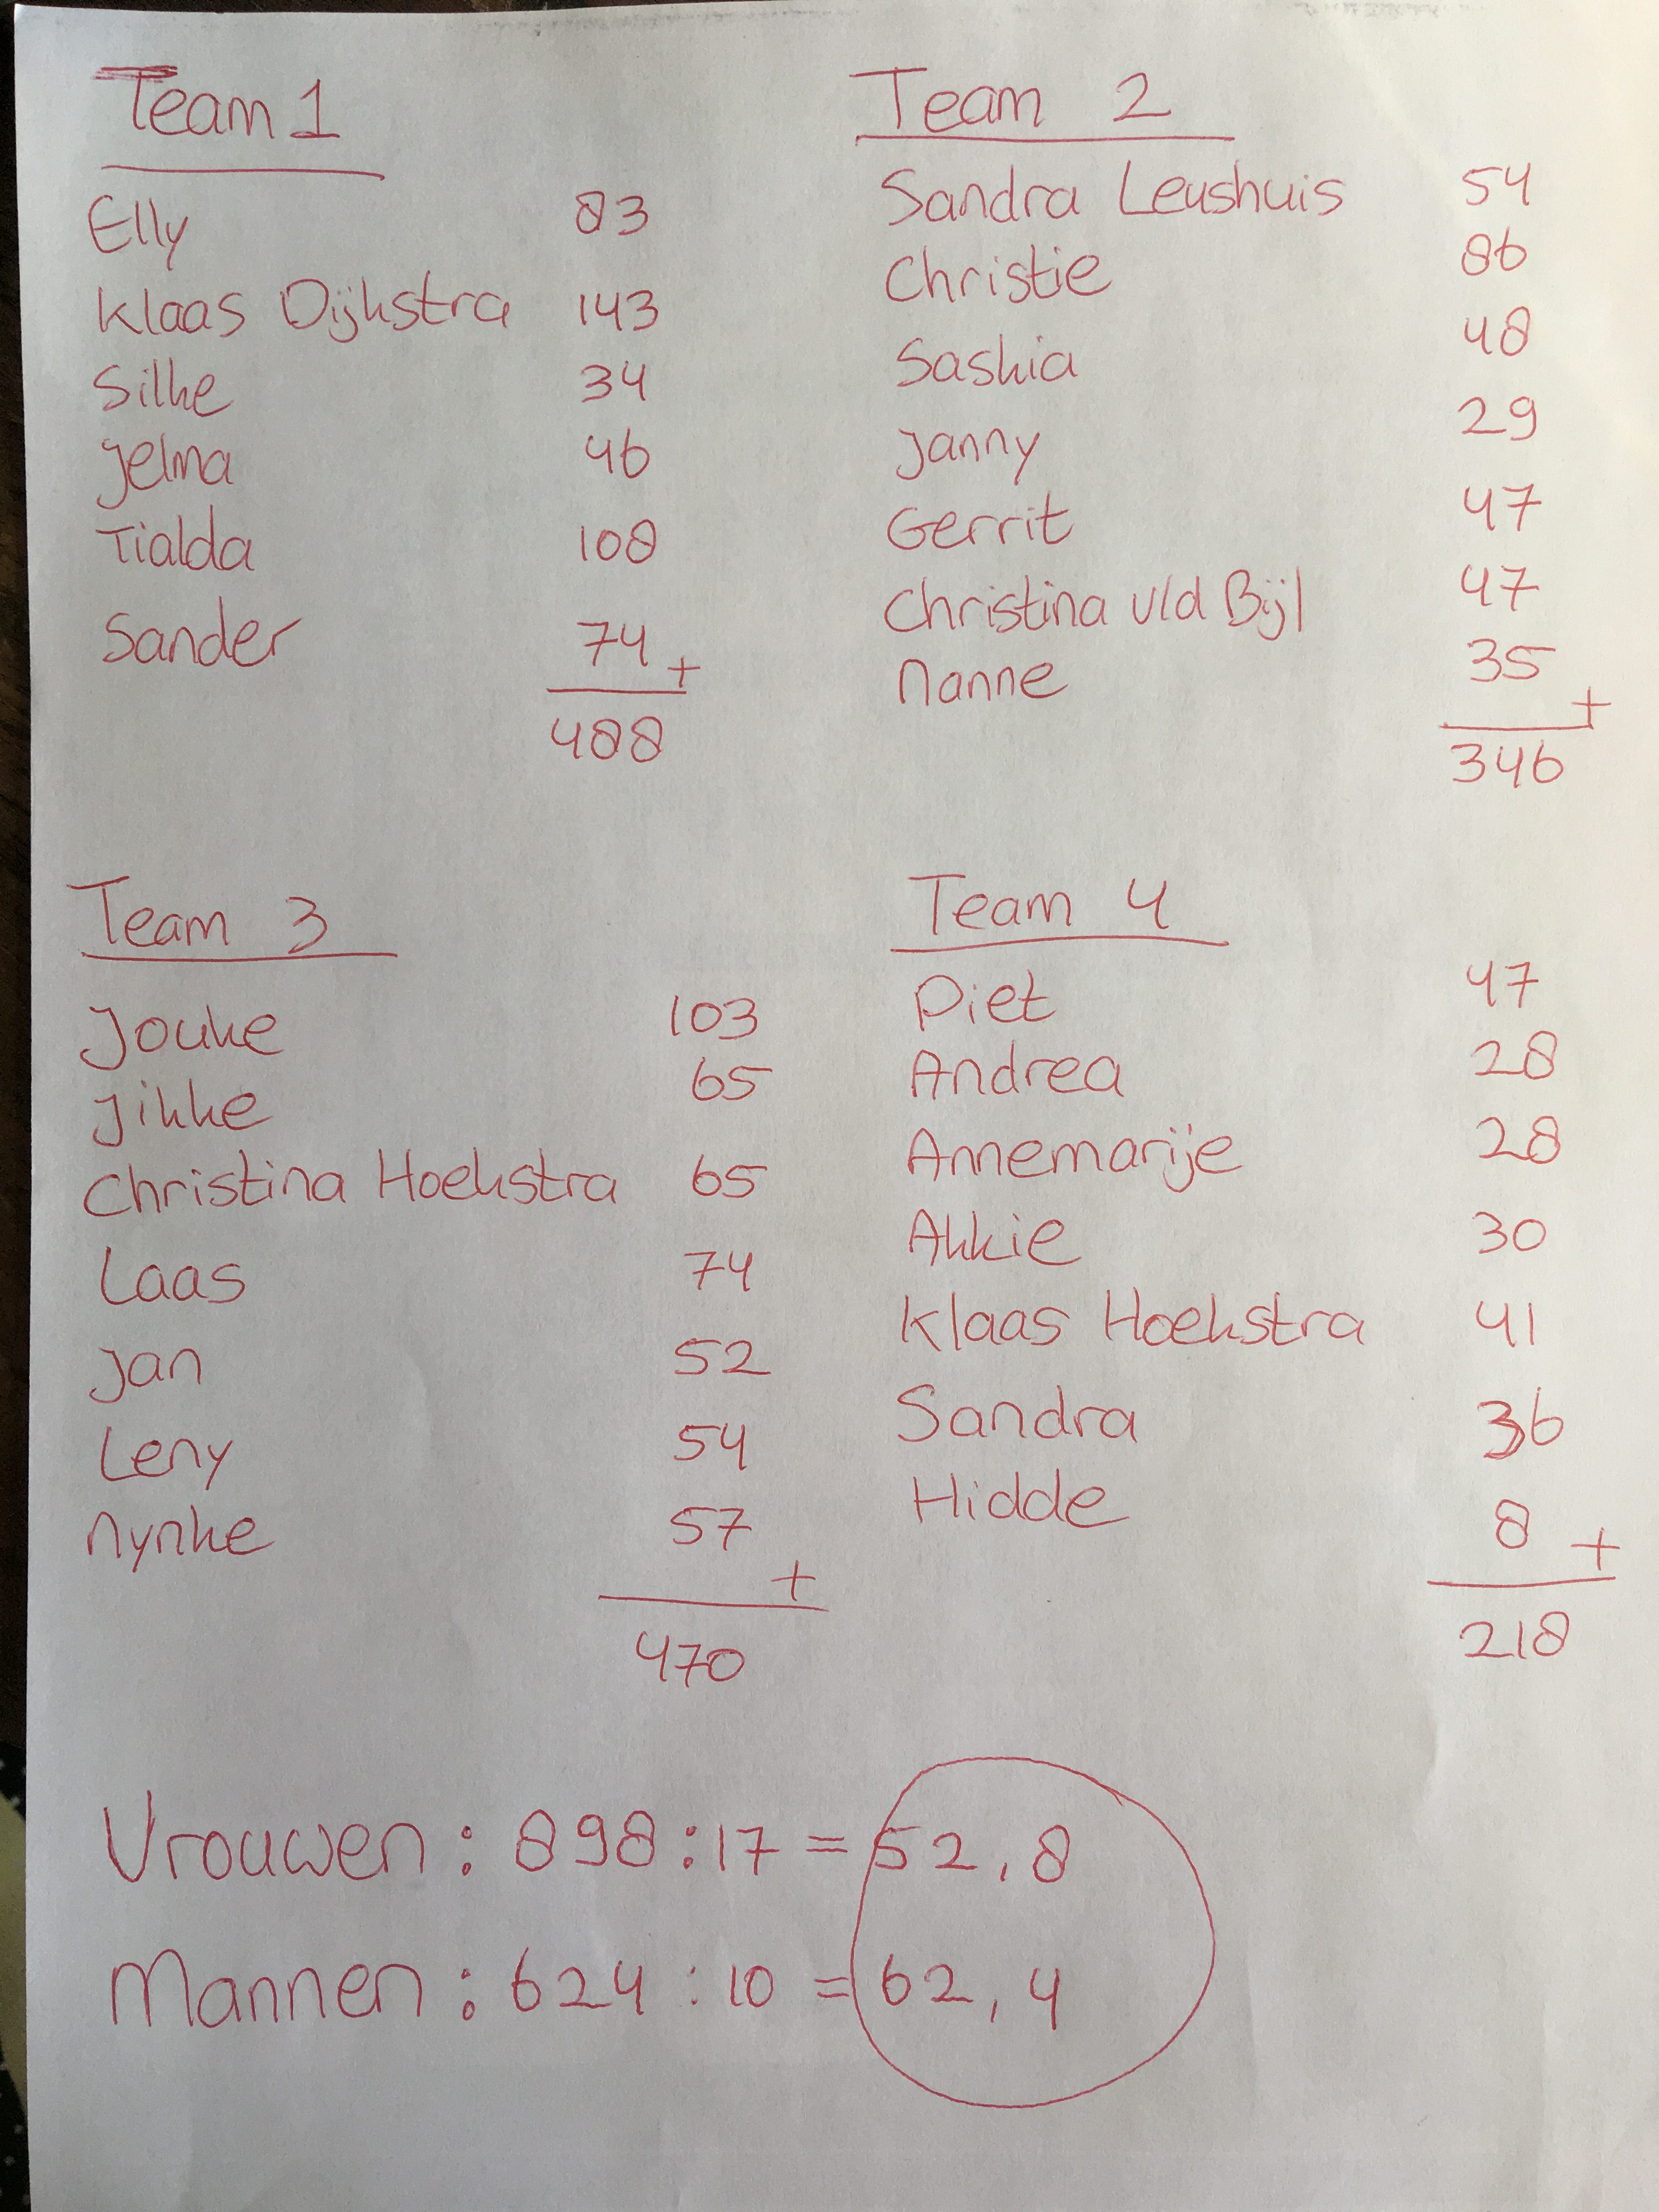 Team 1
Elly 83
Klaas Dijkstra 143
Silke 34
Jelma 46
Tialda 108
Sander 74 +
488
Team 2
Sandra Leushuis 54
Christie 86
Saskia 48
Janny 29
Gerrit 47
Christina v/d Bijl 47
Nanne 35 +
346
Team 3
Jouke 103
Jikke 65
Christina Hoekstra 65
Laas 74
Jan 52
Leny 54
Nynke 57 +
470
Team 4
Piet 47
Andrea 28
Annemarije 28
Akkie 30
Klaas Hoekstra 41
Sandra 36
Hidde 8 +
218
Vrouwen : 898 : 17 = 52,8
Mannen : 624 : 10 = 62,4